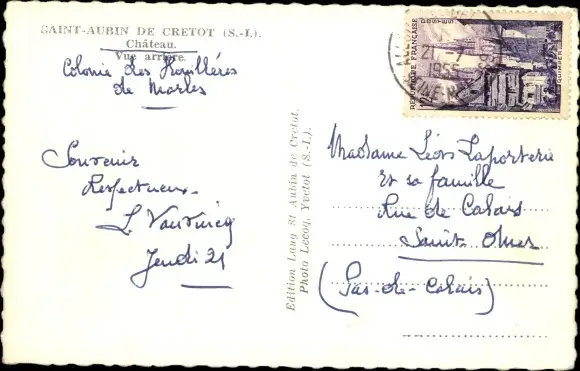 SAINT-AUBIN DE CRETOT (S.-I.).
Château.
Vue arrière.
Colonie des Houillères
de Marles
Souvenir
Respectueux.
Jeudi 21
Edition Laug St Aubin de Cretot.
Photo Lecoq, Yvetot (S.-I.).
POSTES
REPUBLIQUE FRANÇAISE
QUIMPER
21 -7
1955
Madame Léon Laporterie
et sa famille
Rue de Calais
Saint Omer
(Pas-de-Calais)